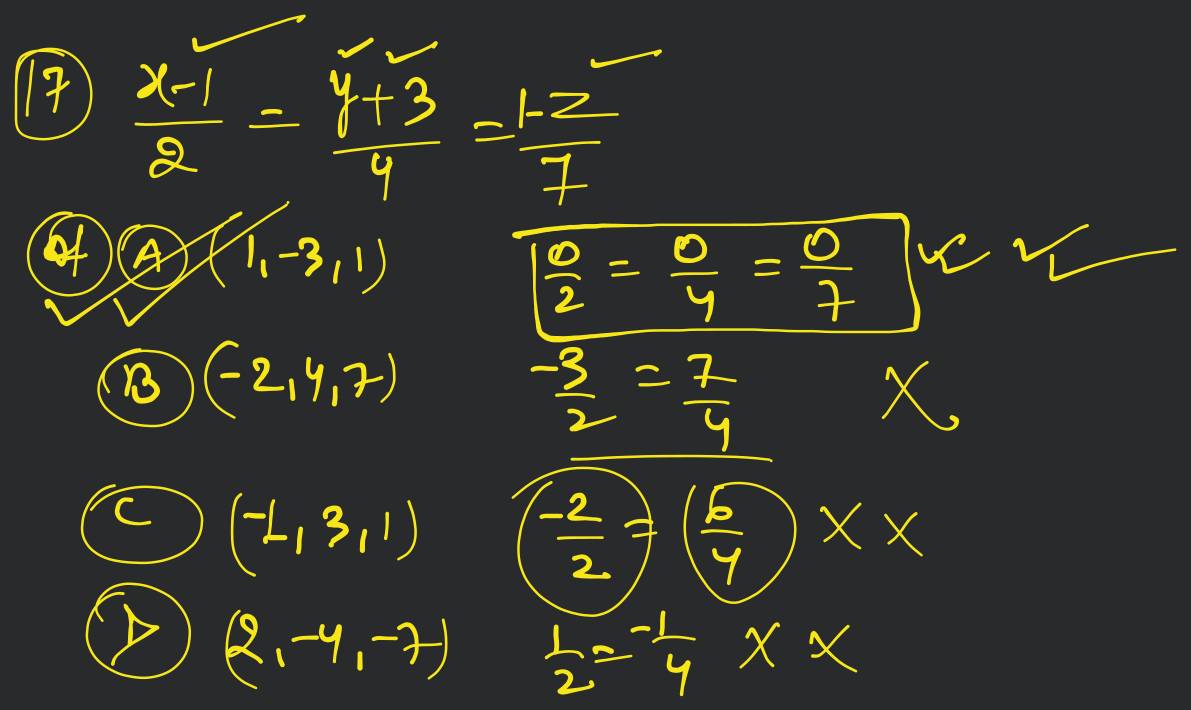 17 x-1/2 = y+3/4 = 1-z/7
A (1,-3,1) 0/2 = 0/4 = 0/7
B (-2,4,7) -3/2 = 7/4 X
C (-1,3,1) -2/2 = 6/4 X X
D (2,-4,-7) 1/2 = -1/4 X X